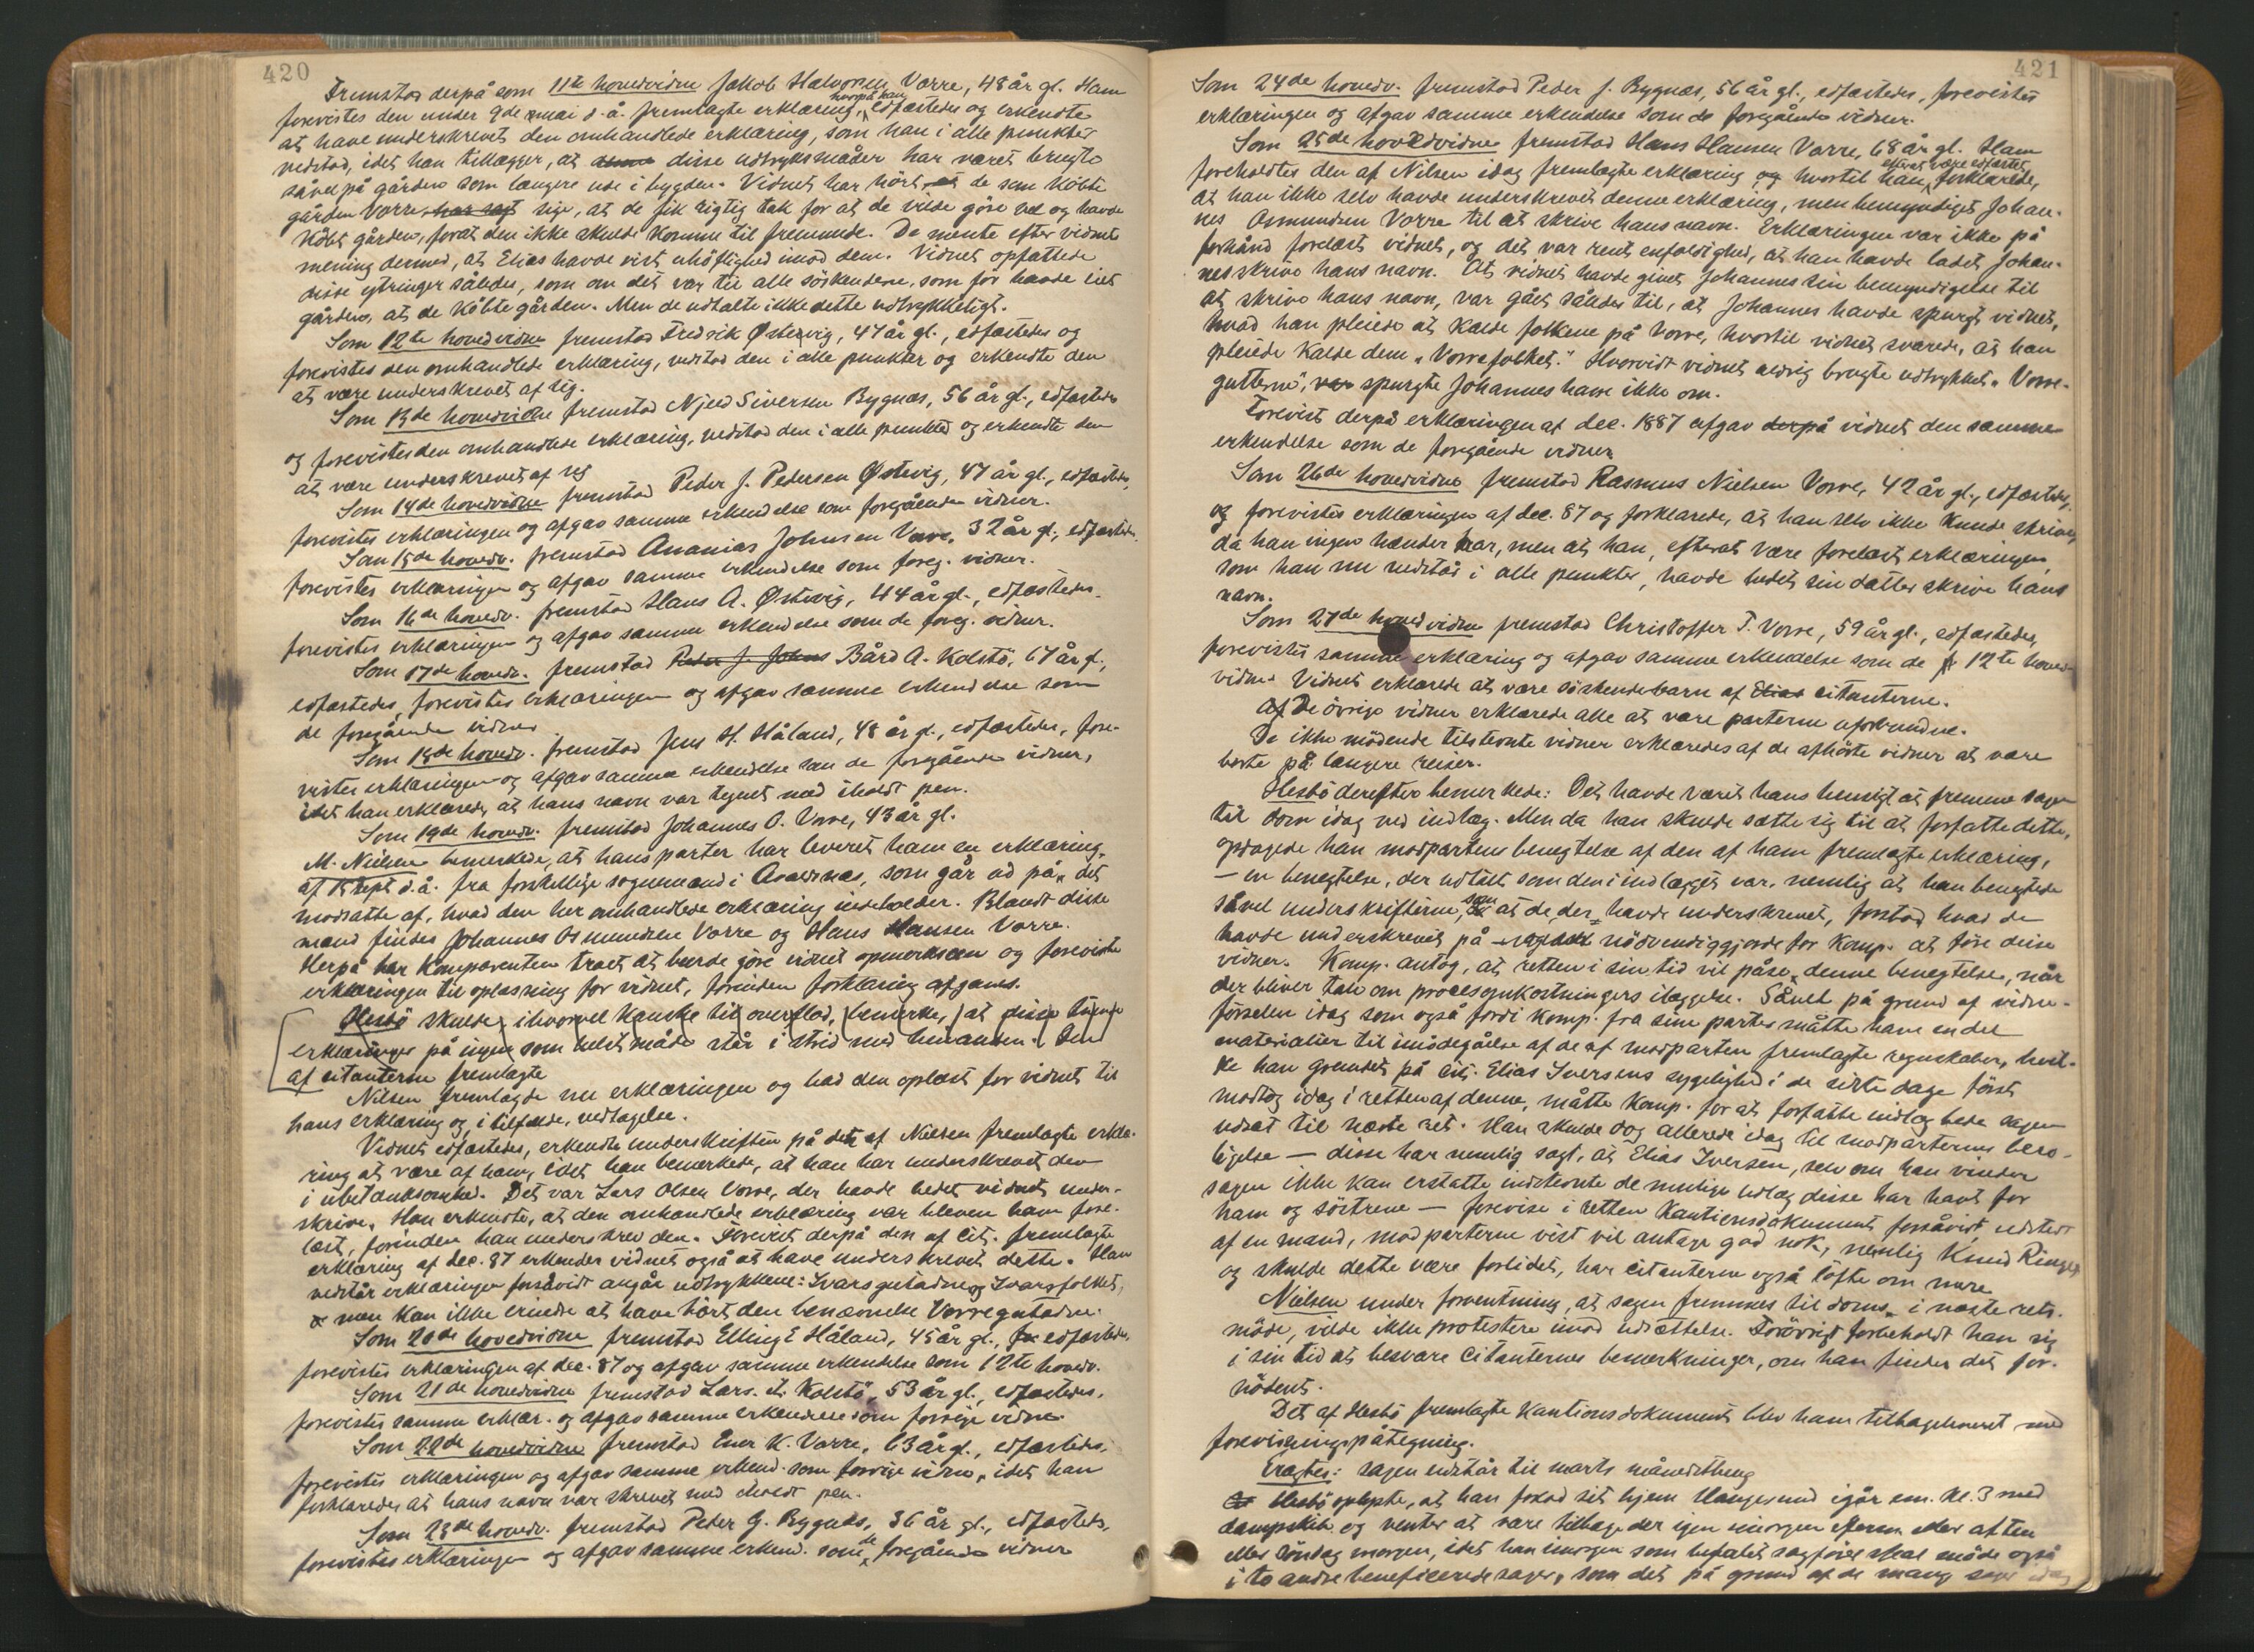 420
Fremstod derpå som 11te hovedvidne Jakob Halvorsen Vorre, 48 år gl. Ham
forevistes den under 9de mai d. å. fremlagte erklæring, hvorpå han edfæstedes og erkendte
at have underskrevet den omhandlede erklæring, som han i alle punkter
vedstod, idet han tillægger, at disse udtryksmåder har været brugte
såvel på gården som længere ude i bygden. Vidnet har hört, at de som köbte
gården Vorre, har sagt sige, at de fik rigtig tak for at de vilde göre vel og havde
köbt gården, forat den ikke skulde komme til fremmede. De mente efter vidnets
mening dermed, at Elias havde vist uhöflighed imod dem. Vidnet opfattede
disse ytringer således, som om det var til alle söskendene, som för havde eiet
gården, at de köbte gården. Men de udtalte ikke dette udtrykkeligt.
Som 12te hovedvidne fremstod Fredrik Østevig, 47 år gl., edfæstedes og
forevistes den omhandlede erklæring, vedstod den i alle punkter og erkendte den
at være underskrevet af sig.
Som 13de hovedvidne fremstod Njeld Siversen Bygnæs, 56 år gl., edfæstedes
og forevistes den omhandlede erklæring, vedstod den i alle punkter og erkendte den
at være underskrevet af sig
Som 14de hovedvidne fremstod Peder J. Pedersen Østevig, 47 år gl., edfæstedes,
forevistes erklæringen og afgav samme erkendelse som foregående vidner.
Som 15de hovedv. fremstod Ananias Johnsen Vorre, 32 år gl., edfæstedes.
forevistes erklæringen og afgav samme erkendelse som foreg. vidner.
Som 16de hovedv. fremstod Hans A. Østevig, 44 år gl., edfæstedes.
forevistes erklæringen og afgav samme erkendelse som de foreg. vidner.
Som 17de hovedv. fremstod Peder J. Johns Bård A. Kolstö, 67 år gl.,
edfæstedes, forevistes erklæringen og afgav samme erkendelse som
de foregående vidner
Som 18de hovedv. fremstod Jens H. Håland, 48 år gl., edfæstedes, fore-
vistes erklæringen og afgav samme erkendelse som de foregående vidner,
idet han erklærede, at hans navn var tegnet med iholdt pen.
Som 19de hovedv. fremstod Johannes O. Vorre, 43 år gl.
M. Nielsen bemerkede, at hans parter har leveret ham en erklæring,
af 15 sept. d. å. fra forskellige sognemænd i Avaldsnæs, som går ud på det
modsatte af, hvad den her omhandlede erklæring indeholder. Blandt disse
mænd findes Johannes Osmundsen Vorre og Hans Hansen Vorre.
Herpå har komparenten troet at burde göre vidnet opmerksom og foreviste
erklæringen til oplæsning for vidnet, forinden forklaring afgaves.
Hesbö skulde, ihvorvel kanske til overflod, bemerke, at disse tvende
erklæringer på ingen som helst måde står i strid med hinanden. Den
af citanterne fremlagte
Nilsen fremlagde nu erklæringen og bad den oplæst for vidnet til
hans erklæring og, i tilfælde, vedtagelse.
Vidnet edfæstedes, erkendte underskriften på den af Nielsen fremlagte erklæ-
ring at være af ham, idet han bemærkede, at han har underskrevet den
i ubetænksomhed. Det var Lars Olsen Vorre, der havde bedet vidnet under-
skrive. Han erkendte, at den omhandlede erklæring var bleven ham fore-
læst, forinden han underskrev den. Forevist derpå den af Cit. fremlagte
erklæring af dec. 87 erkender vidnet også at have underskrevet dette. Han
vedstår erklæringen forsåvidt angår udtrykkene: Ivarsgutadne og Ivarsfolket,
men kan ikke erindre at have hört den benævnelse Vorregutadne.
Som 20de hovedvidne fremstod Elling E Håland, 45 år gl., edfæstedes,
forevistes erklæringen af dec. 87 og afgav samme erkendelse som 12te hovedv.
Som 21de hovedvidne fremstod Lars. A. Kolstö, 53 år gl., edfæstedes,
forevistes samme erklær. og afgav samme erkendelse som forrige vidne.
Som 22de hovedvidne fremstod Einer K. Vorre, 63 år gl., edfæstedes,
forevistes erklæringen og afgav samme erkend. som forrige vidne, idet han
forklarede, at hans navn var skrevet med iholdt pen.
Som 23de hovedv. fremstod Peder G. Bygnæs, 36 år gl., edfæstedes,
forevistes erklæringen og afgav samme erkend. som de foregående vidner
421
Som 24de hovedv. fremstod Peder J. Bygnæs, 56 år gl., edfæstedes, forevistes
erklæringen og afgav samme erkendelse som de foregående vidner.
Som 25de hovedvidne fremstod Hans Hansen Vorre, 68 år gl. Ham
foreholdtes den af Nilsen idag fremlagte erklæring og hvortil han, efterat være edfæstet, forklarede,
at han ikke selv havde underskrevet denne erklæring, men bemyndiget Johan-
nes Osmundsen Vorre til at skrive hans navn. Erklæringen var ikke på
forhånd forelæst vidnet, og det var rent enfoldighed, at han havde ladet Johan-
nes skrive hans navn. At vidnet havde givet Johannes sin bemyndigelse til
at skrive hans navn, var gået således til, at Johannes havde spurgt vidnet,
hvad han pleiede at kalde folkene på Vorre, hvortil vidnet svarede, at han
pleiede kalde dem „Vorrefolket." Hvorvidt vidnet aldrig brugte udtrykket „Vorre-
gutterne", spurgte Johannes ham ikke om.
Forevist derpå erklæringen af dec. 1887 afgav derpå vidnet den samme
erkendelse som de foregående vidner
Som 26de hovedvidne fremstod Rasmus Nielsen Vorre, 42 år gl., edfæstedes,
og forevistes erklæringen af dec. 87 og forklarede, at han selv ikke kunde skrive,
da han ingen hænder har, men at han, efterat være forelæst erklæringen,
som han nu vedstår i alle punkter, havde bedet sin datter skrive hans
navn.
Som 27de hovedvidne fremstod Christoffer T. Vorre, 59 år gl., edfæstedes,
forevistes samme erklæring og afgav samme erkendelse som de 12te hoved-
vidne. Vidnet erklærede at være söskendebarn af Elias citanterne.
Af De övrige vidner erklærede alle at være parterne uforbundne.
De ikke mödende tilstevnte vidner erklæredes af de afhörte vidner at være
borte på længere reiser.
Hesbö derefter bemerkede: Det havde været hans hensigt at fremme sagen
til dom idag ved indlæg. Men da han skulde sætte sig til at forfatte dette,
opdagede han modpartens benegtelse af den af ham fremlagte erklæring,
– en benegtelse, der udtalt som den i indlægget var, nemlig at han benegtede
såvel underskrifterne, som at de, der havde underskrevet, forstod hvad de
havde underskrevet på – nödvendiggjorde for komp. at före disse
vidner. Komp. antog, at retten i sin tid vil påse denne benegtelse, når
der bliver tale om procesomkostningers ilæggelse. Såvel på grund af vidne-
förselen idag som også fordi komp. fra sine parter måtte have endel
materialier til imödegåelse af de af modparten fremlagte regnskaber, hvil-
ke han grundet på cit. Elias Iversens sygelighed i de sidste dage först
modtog idag i retten af denne, måtte komp. for at forfatte indlæg bede sagen
udsat til næste ret. Han skulde dog allerede idag til modparternes bero-
ligelse – disse har nemlig sagt, at Elias Iversen, selv om han vinder
sagen ikke kan erstatte indstevnte de mulige udlæg disse har havt for
ham og söstrene – forevise i retten kautionsdokument forsåvidt udstedt
af en mand, modparterne vist vil antage god nok, nemlig Knud Ringen
og skulde dette være forlidet, har citanterne også löfte om mere
Nielsen under forventning, at sagen fremmes til doms i næste rets-
möde, vilde ikke protestere imod udsættelse. Forövrigt forbeholdt han sig
i sin tid at besvare citanternes bemerkninger, om han finder det for-
nödent.
Det af Hesbö fremlagte kautionsdokument blev ham tilbageleveret med
forevisningspåtegning.
Eragtes: sagen udstår til marts månedsthing
Hesbö oplyste, at han forlod sit hjem Haugesund igår em. kl. 3 med
dampskib og venter at være tilbage der igen imorgen efterm. eller aften
eller söndag morgen, idet han imorgen som befalet sagförer skal möde også
i to andre beneficerede sager, som det på grund af de mange sager idag